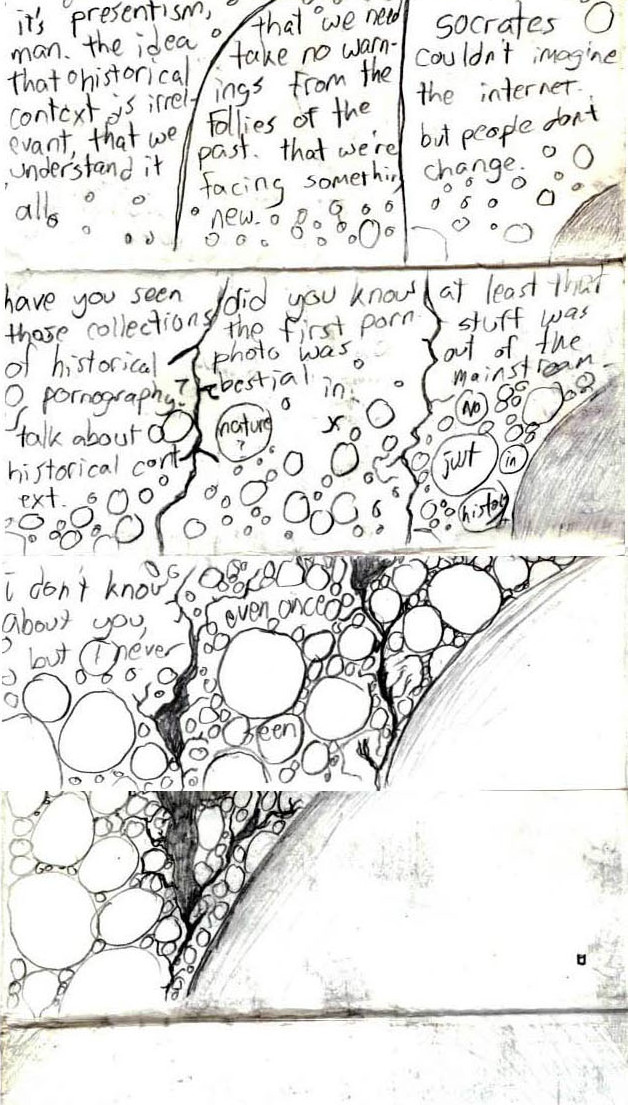 it's presentism,
man. the idea
that historical
context is irrel-
evant, that we
understand it
all.
that we need
take no warn-
ings from the
follies of the
past. that we're
facing something
new.
socrates
couldn't imagine
the internet.
but people don't
change.
have you seen
those collections
of historical
pornography?
talk about
historical cont-
ext.
did you know
the first porn.
photo was
bestial in
nature
?
at least that
stuff was
out of the
mainstream
No
just
in
history
i don't know
about you,
but I never
even once
seen